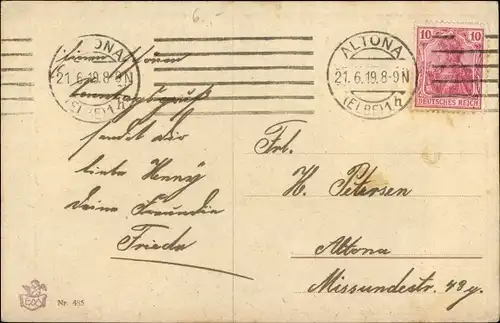 6.
ALTONA
21.6.19.8-9N
(ELBE)1h
10 10
DEUTSCHES REICH
ALTONA
21.6.19.8-9N
(ELBE)1h
Einen schönen
Sonntagsgruß
sendet dir
liebe Henny
deine Freundin
Frieda
Frl.
H. Petersen
Altona
Missundestr. 48
Nr. 485